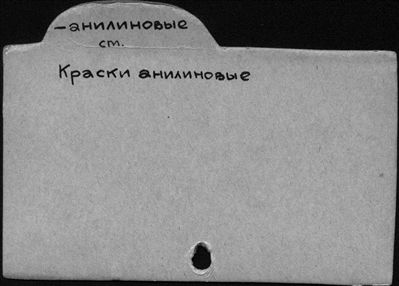 –анилиновые
ст.
Краски анилиновые